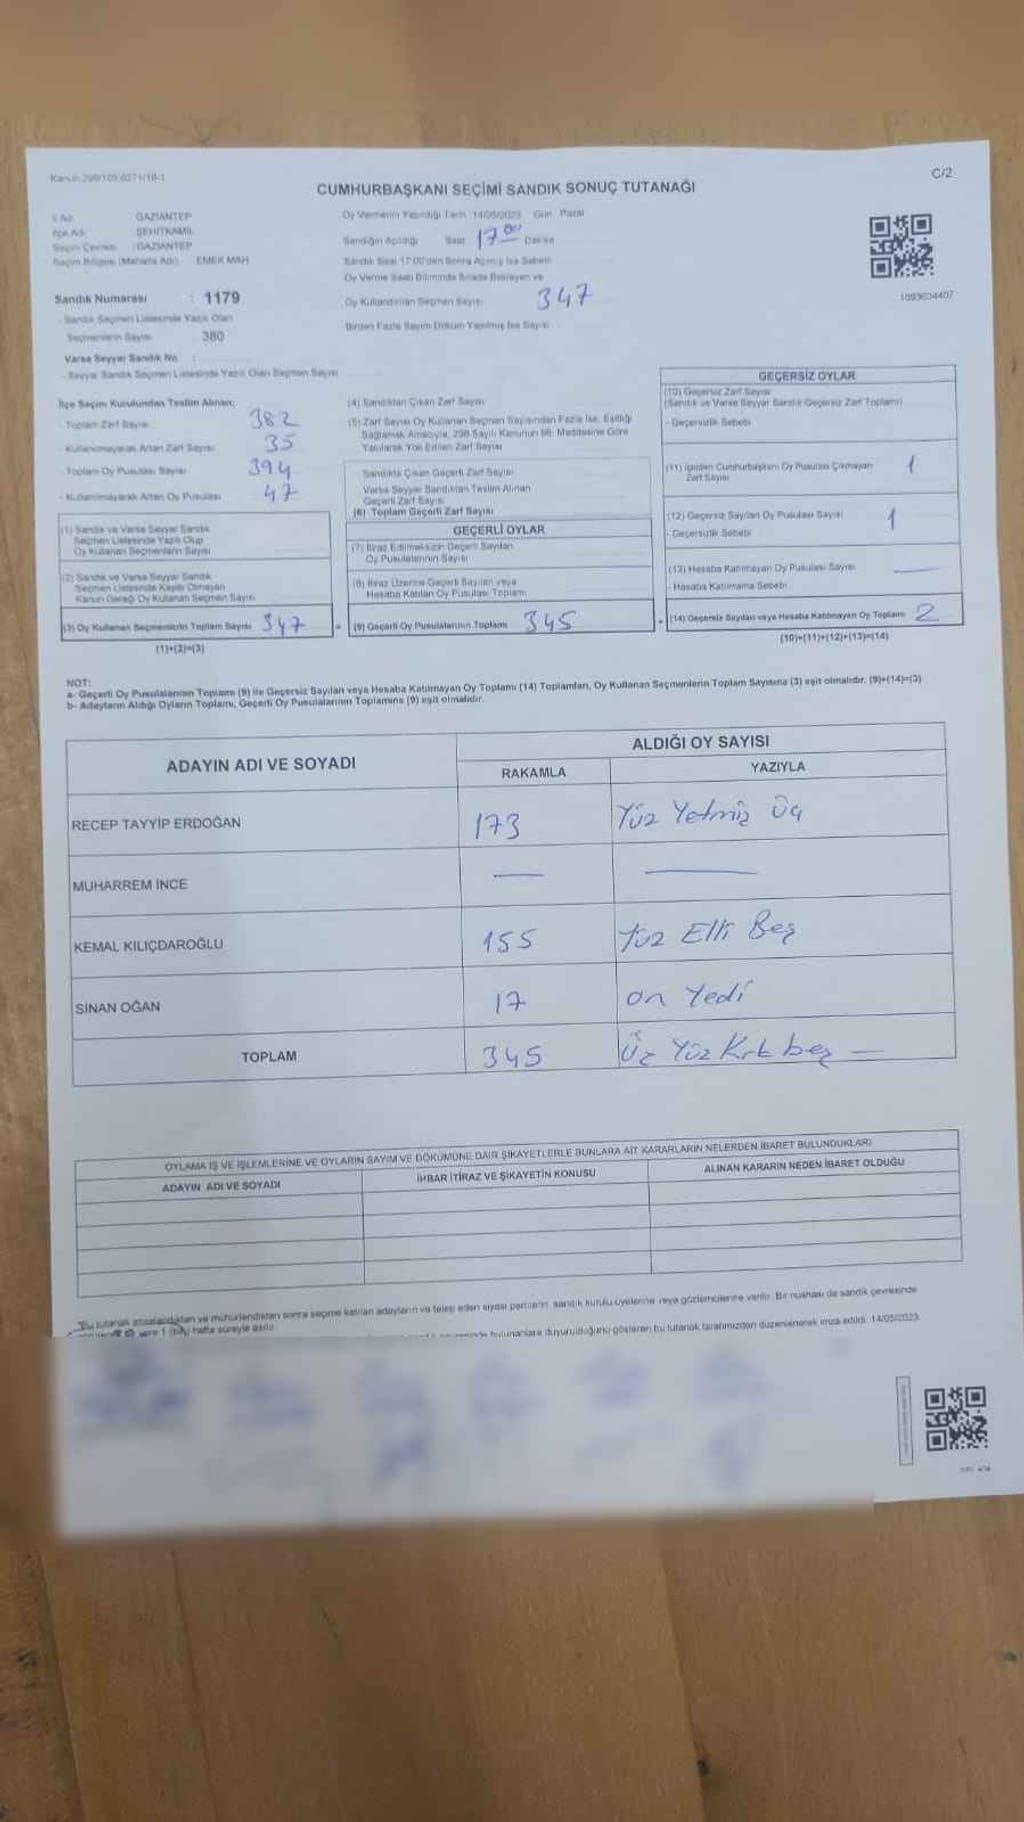 Kanun 298/105,6271/18-1
C/2
CUMHURBAŞKANI SEÇİMİ SANDIK SONUÇ TUTANAĞI
İl Adı GAZİANTEP
İlçe Adı ŞEHİTKAMİL
Seçim Çevresi :GAZİANTEP
Seçim Bölgesi (Mahalle Adı) EMEK MAH
Sandık Numarası : 1179
- Sandık Seçmen Listesinde Yazılı Olan
Seçmenlerin Sayısı 380
Varsa Seyyar Sandık No :
- Seyyar Sandık Seçmen Listesinde Yazılı Olan Seçmen Sayısı
Oy Vermenin Yapıldığı Tarih :14/05/2023 Gün: Pazar
Sandığın Açıldığı Saat 17 00 Dakika
Sandık Saat 17:00'den Sonra Açılmış İse Sebebi
Oy Verme Saati Bitiminde Sırada Bekleyen ve
Oy Kullandırılan Seçmen Sayısı 347
Birden Fazla Sayım Döküm Yapılmış İse Sayısı
1093634407
İlçe Seçim Kurulundan Teslim Alınan;
- Toplam Zarf Sayısı 382
- Kullanılmayarak Artan Zarf Sayısı 35
- Toplam Oy Pusulası Sayısı 394
- Kullanılmayarak Artan Oy Pusulası 47
(1) Sandık ve Varsa Seyyar Sandık
Seçmen Listesinde Yazılı Olup
Oy Kullanan Seçmenlerin Sayısı
(2) Sandık ve Varsa Seyyar Sandık
Seçmen Listesinde Kayıtlı Olmayan
Kanun Gereği Oy Kullanan Seçmen Sayısı
(3) Oy Kullanan Seçmenlerin Toplam Sayısı 347
(1)+(2)=(3)
(4) Sandıktan Çıkan Zarf Sayısı
(5) Zarf Sayısı Oy Kullanan Seçmen Sayısından Fazla İse, Eşitliği
Sağlamak Amacıyla, 298 Sayılı Kanunun 98. Maddesine Göre
Yakılarak Yok Edilen Zarf Sayısı
Sandıkta Çıkan Geçerli Zarf Sayısı
Varsa Seyyar Sandıktan Teslim Alınan
Geçerli Zarf Sayısı
(6) Toplam Geçerli Zarf Sayısı
GEÇERLİ OYLAR
(7) İtiraz Edilmeksizin Geçerli Sayılan
Oy Pusulalarının Sayısı
(8) İtiraz Üzerine Geçerli Sayılan veya
Hesaba Katılan Oy Pusulası Toplamı
= (9) Geçerli Oy Pusulalarının Toplamı 345
GEÇERSİZ OYLAR
(10) Geçersiz Zarf Sayısı
(Sandık ve Varsa Seyyar Sandık Geçersiz Zarf Toplamı)
- Geçersizlik Sebebi
(11) İçinden Cumhurbaşkanı Oy Pusulası Çıkmayan
Zarf Sayısı 1
(12) Geçersiz Sayılan Oy Pusulası Sayısı 1
- Geçersizlik Sebebi
(13) Hesaba Katılmayan Oy Pusulası Sayısı —
- Hesaba Katılmama Sebebi
+ (14) Geçersiz Sayılan veya Hesaba Katılmayan Oy Toplamı 2
(10)+(11)+(12)+(13)=(14)
NOT:
a- Geçerli Oy Pusulalarının Toplamı (9) ile Geçersiz Sayılan veya Hesaba Katılmayan Oy Toplamı (14) Toplamları, Oy Kullanan Seçmenlerin Toplam Sayısına (3) eşit olmalıdır. (9)+(14)=(3)
b- Adayların Aldığı Oyların Toplamı, Geçerli Oy Pusulalarının Toplamına (9) eşit olmalıdır.
ADAYIN ADI VE SOYADI
ALDIĞI OY SAYISI
RAKAMLA YAZIYLA
RECEP TAYYİP ERDOĞAN 173 Yüz Yetmiş Üç
MUHARREM İNCE — —
KEMAL KILIÇDAROĞLU 155 Yüz Elli Beş
SİNAN OĞAN 17 on Yedi
TOPLAM 345 Üç Yüz Kırk beş —
OYLAMA İŞ VE İŞLEMLERİNE VE OYLARIN SAYIM VE DÖKÜMÜNE DAİR ŞİKAYETLERLE BUNLARA AİT KARARLARIN NELERDEN İBARET BULUNDUKLARI
ADAYIN ADI VE SOYADI İHBAR İTİRAZ VE ŞİKAYETİN KONUSU ALINAN KARARIN NEDEN İBARET OLDUĞU
"Bu tutanak imzalandıktan ve mühürlendikten sonra seçime katılan adayların ve talep eden siyasi partilerin, sandık kurulu üyelerine veya gözlemcilerine verilir. Bir nüshası da sandık çevresinde
1 (bir) hafta süreyle asılır.
bulunanlara duyurulduğunu gösteren bu tutanak tarafımızdan düzenlenerek imza edildi. 14/05/2023